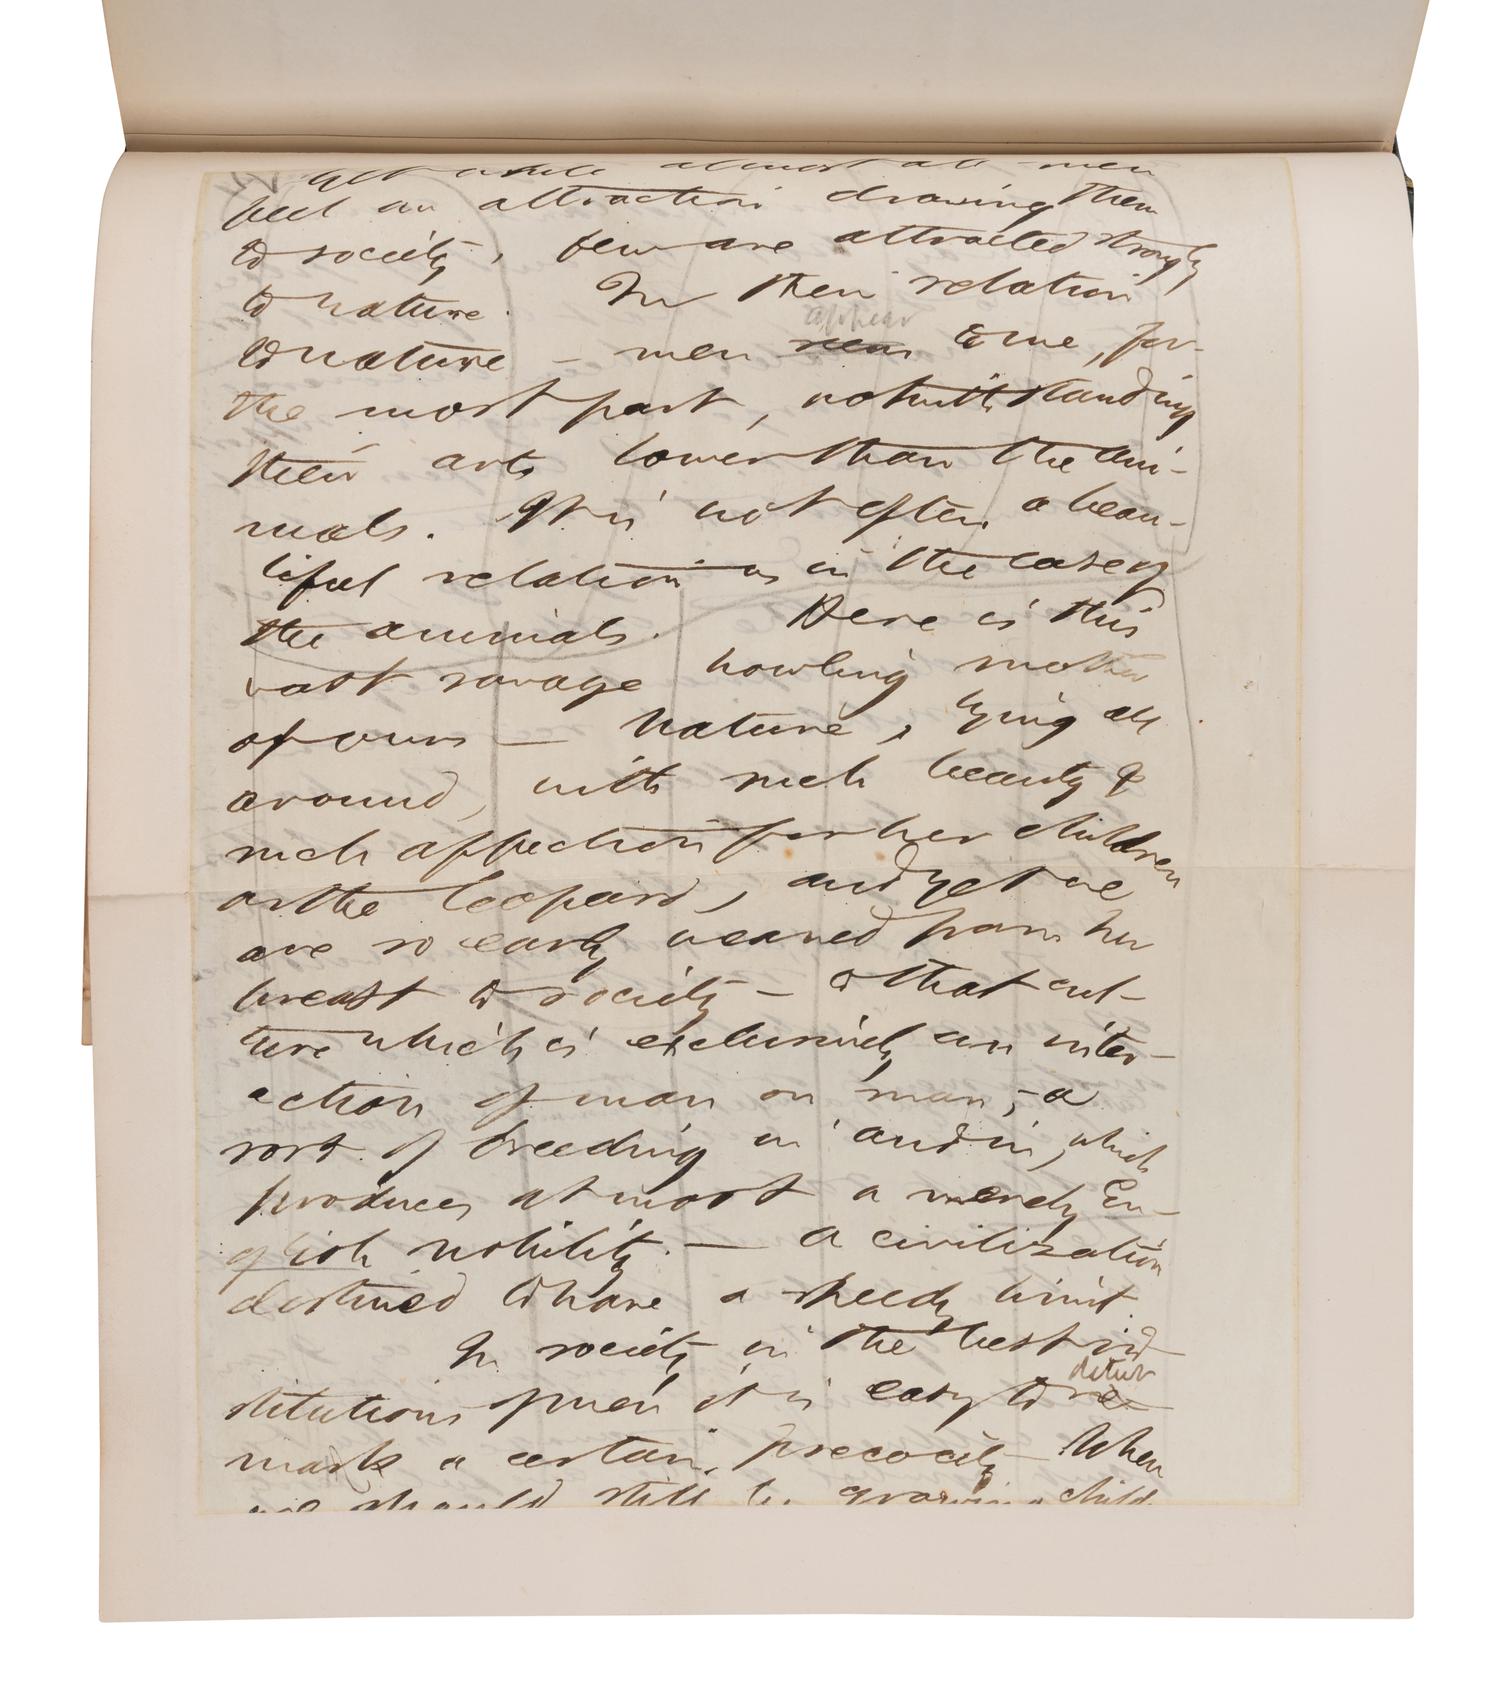 while almost all men
feel an attraction drawing them
to society, few are attracted strongly
to nature. In their relation
appear
to nature — men seem to me, for
the most part, notwithstanding
their arts lower than the ani-
mals. It is not often a beau-
tiful relation as in the case of
the animals. Here is this
vast savage howling mother
of ours — Nature, lying all
around, with such beauty &
such affection for her children
as the leopard, and yet we
are so early weaned from her
breast to society — to that cul-
ture which is exclusively an inter-
action of man on man, — a
sort of breeding in and in, which
produces at most a merely En-
glish nobility. — a civilization
destined to have a speedy limit.
In society in the best in-
detect
stitutions of men it is easy to re-
mark a certain precocity When
we should still be growing child